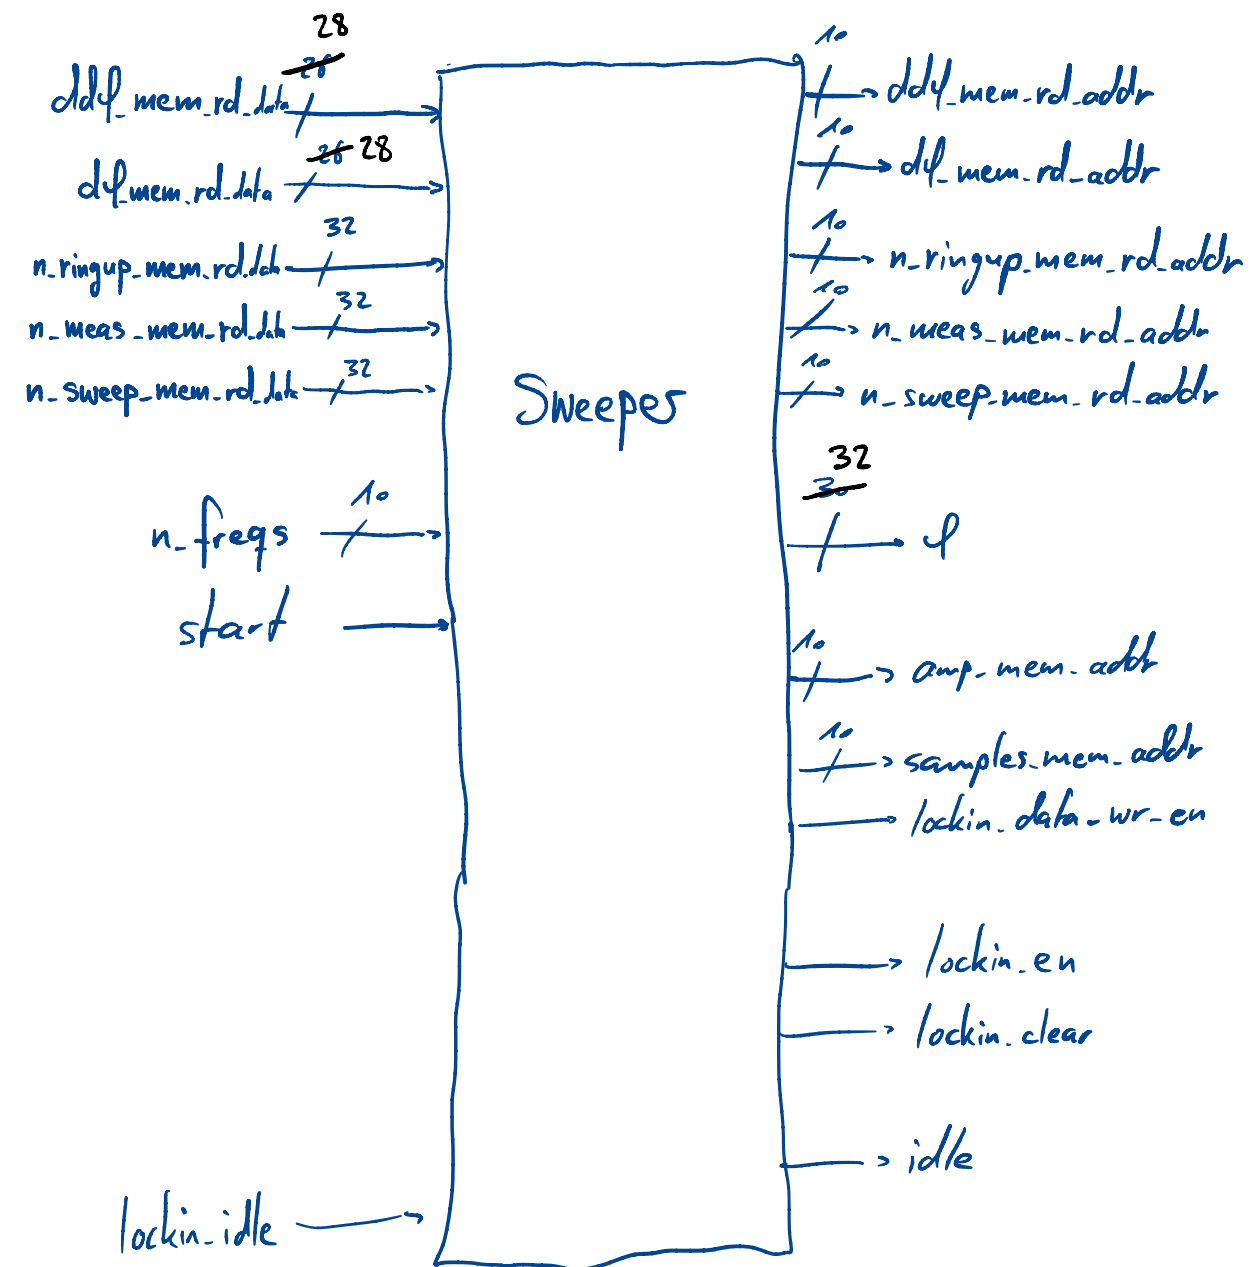 28
26
ddφ_mem_rd_data
26 28
dφ_mem_rd_data
32
n_ringup_mem_rd_data
32
n_meas_mem_rd_data
32
n_sweep_mem_rd_data
10
n_freqs
start
lockin_idle
Sweeper
10
ddφ_mem_rd_addr
10
dφ_mem_rd_addr
10
n_ringup_mem_rd_addr
10
n_meas_mem_rd_addr
10
n_sweep_mem_rd_addr
32
30
φ
10
amp_mem_addr
10
samples_mem_addr
lockin_data_wr_en
lockin_en
lockin_clear
idle